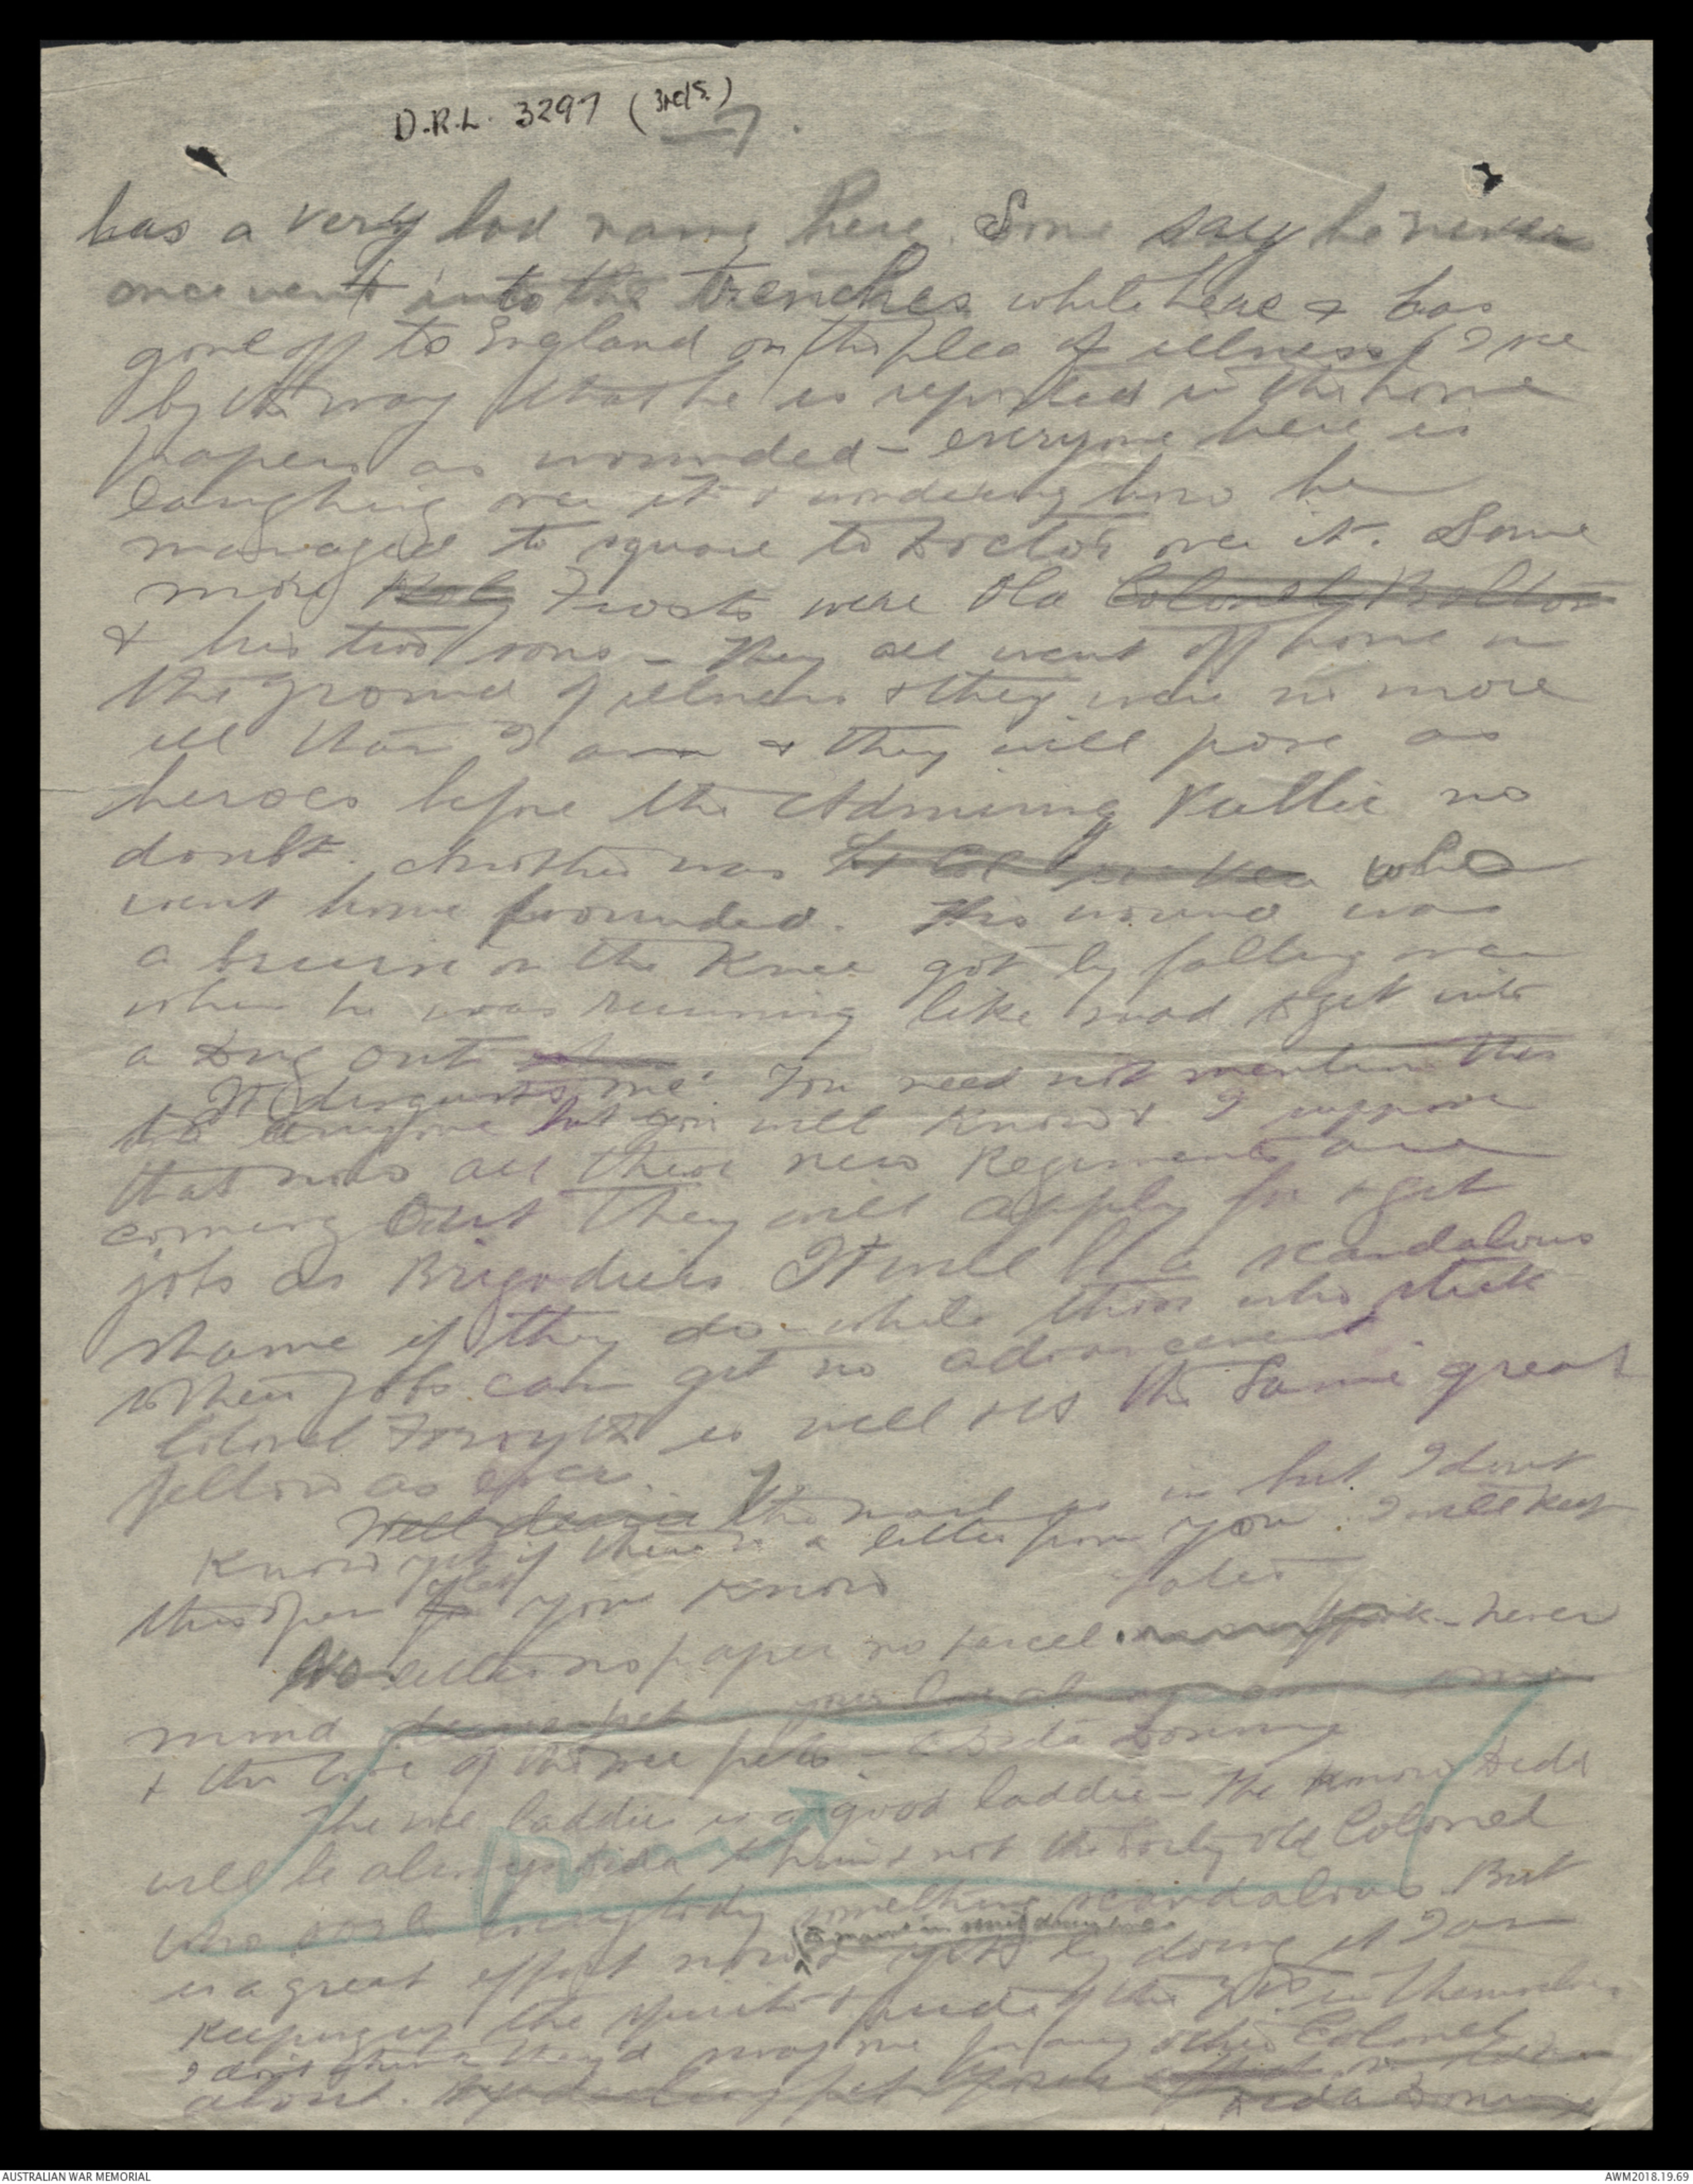 D.R.L. 3297 (3rd S.)
7.
has a very bad name here. Some say he never
once went into the trenches while here & has
gone off to England on the plea of illness (I see
by the way that he is reported in the home
papers as wounded - everyone here is
laughing over it & wondering how he
managed to square to Doctor over it. Some
more Frosts were Old Colonel Bolton
& his two sons - They all went off home on
the ground of illness & they were no more
ill than I am & they will pose as
heroes before the Admiring Public no
doubt. Another was Lt Col who
went home wounded. His wound was
a bruise on the Knee got by falling over
when he was running like mad to get into
a Dug out
It disgusts me. You need not mention this
to anyone but you will know & I suppose
that now all these new Regiments are
coming Out they will apply for & get
jobs as Brigadiers It will be a scandalous
shame if they do - while those who stick
to their jobs can get no advancement.
Colonel Forsyth is well & is the same great
fellow as ever.
Well dearie the mail is in but I dont
know yet if there is a letter from you. I will keep
this open till you know later
No letter no paper no parcel. never
mind
& the love of the wee pets - Dida Bonnie
The wee laddie is a good laddie - The Dida
will be always Dida to him & not the old Colonel
who everybody something scandalous. But
is a great effort now & yet by doing it I am
Keeping up the spirit & pride of the 7th in themselves.
I don't think they'd swap me for any other Colonel
about.
Dida Bonnie
AUSTRALIAN WAR MEMORIAL
AWM2018.19.69